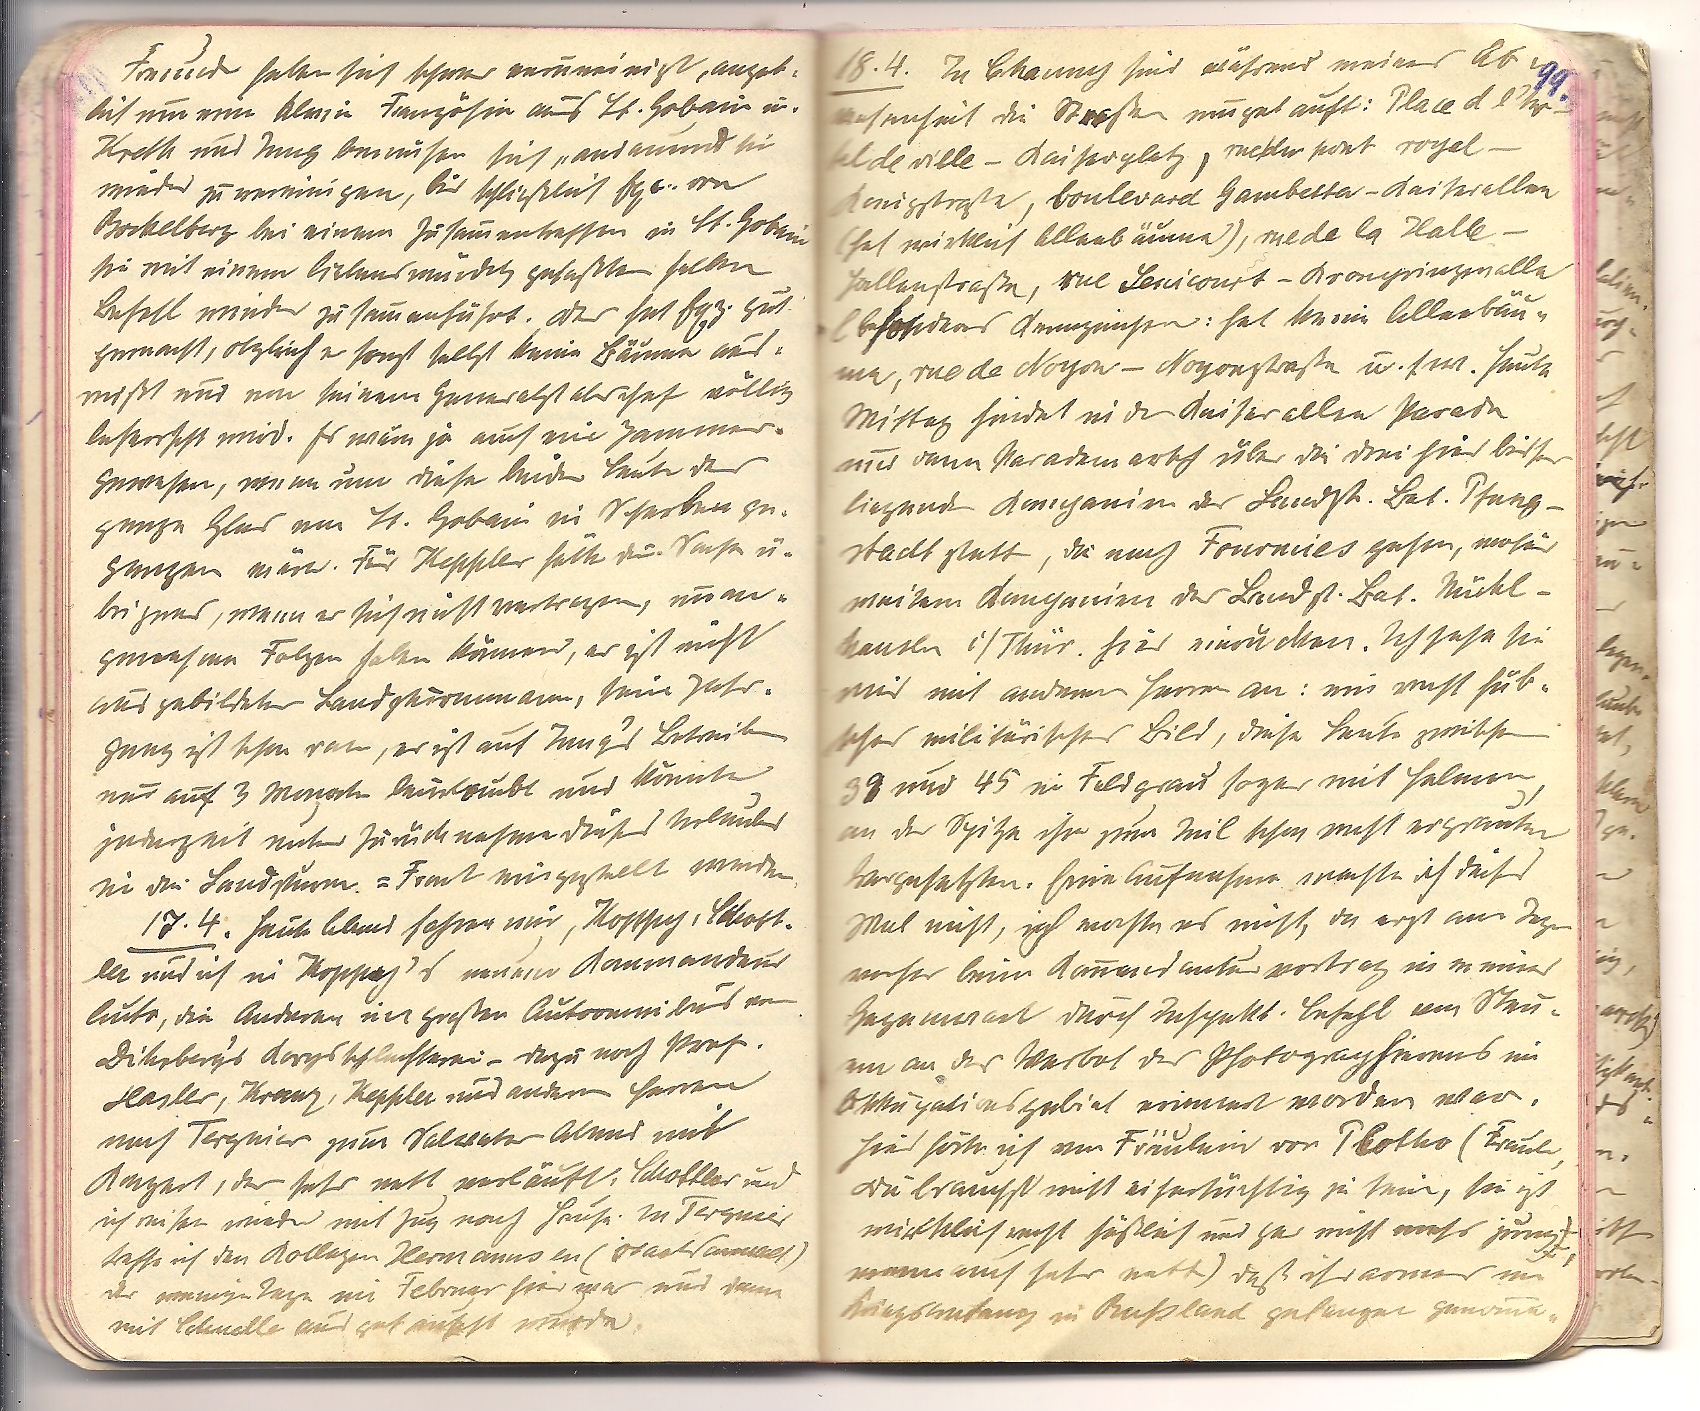 Freunde haben sich schwer veruneinigt, angeb-
lich um eine kleine Französin aus St. Gobain u.
Kreth und Jung bemühen sich, andauernd sie
wieder zu vereinigen, bis schließlich Exz. von
Bockelberg bei einem Zusammentreffen in St. Gobain
sie mit einem liebenswürdig gefaßten halben
Befehl wieder zusammenführt. Das hat Exz. gut
gemacht, obgleich er sonst selbst keine Bäume aus-
reißt und von seinem Generalstabschef völlig
beherrscht wird. Es wäre ja auch ein Jammer
gewesen, wenn um diese beiden Leute das
ganze Glas von St. Gobain in Scherben ge-
gangen wäre. Für Keppler hätte die Sache ü-
brigens, wenn er sich nicht vertragen, unan-
genehme Folgen haben können, er ist nicht
ausgebildeter Landsturmmann, sein Jahr-
gang ist schon ran, er ist auf Jung's Betreiben
nur auf 3 Monate beurlaubt und könnte
jederzeit unter Zurücknahme dieses Urlaubes
in die Landsturm=Front eingestellt werden.
17.4. Heute Abend fahren wir, Koppsch, Schott-
ler und ich in Koppsch's neuem Kommandeur
Auto, die Anderen im großen Autoomnibus von
Ditzberg's Korpsschlachterei - dazu noch Prof.
Hasler, Kranz, Keppler und andere Herren
nach Tergnier zum Salvator Abend mit
Konzert, der sehr nett verläuft. Schottler und
ich reisen wieder mit Zug nach Hause. In Tergnier
treffe ich den Kollegen Hermannsen (Staatsanwalt)
der wenige Tage im Februar hier war und dann
mit Schnelle ausgetauscht wurde.
99.
18.4. In Chauny sind während meiner Ab-
wesenheit die Straßen umgetauft: Place d l'hô-
tel de ville - Kaiserplatz, rue du pont royal -
Königstraße, boulevard Gambetta - Kaiserallee
(hat wirklich Alleebäume), rue de la Halle -
Hallenstraße, rue Senicourt - Kronprinzenallee
(besonderes Kennzeichen: hat keine Alleebäu-
me, rue de Noyon - Noyonstraße u.s.w. Heute
Mittag findet in der Kaiserallee Parade
und dann Parademarsch über die drei hier bisher
liegenden Kompanien des Landst. Bat. Pfung-
stadt statt, die nach Fourmies gehen, wofür
weitere Kompanien des Landst. Bat. Mühl-
hausen i/Thür. hier einrücken. Ich sehe sie
mir mit anderen Herren an: ein recht hüb-
sches militärisches Bild, diese Leute zwischen
39 und 45 in Feldgrau sogar mit Helmen,
an der Spitze ihre zum Teil schon recht ergrauten
Vorgesetzten. Eine Aufnahme machte ich dieses
Mal nicht, ich mochte es nicht, da erst am Tage
vorher beim Kommandanturvortrag in meiner
Gegenwart durch Inspekt. Befehl von Neu-
em an das Verbot des Photographierens im
Okkupationsgebiet erinnert worden war.
Hier hörte ich von Fräulein von Plotho (Traute,
du brauchst nicht eifersüchtig zu sein, sie ist
wirklich recht häßlich und gar nicht mehr jung,
wenn auch sehr nett) daß ihr armer im
Kriegsanfang in Rußland gefangen genomme-